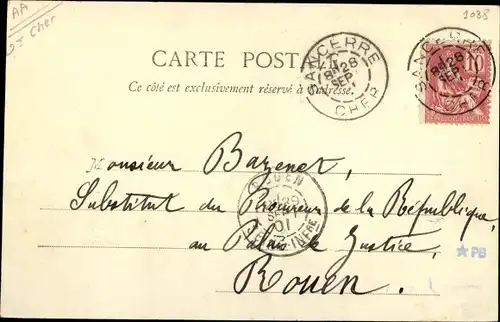 AA
1038
J Cher
CARTE POSTALE
Ce côté est exclusivement réservé à l'adresse.
SANCERRE
28
SEPT
CHER
SANCERRE
28
SEPT
CHER
10
Monsieur Bazenet,
ROUEN
Substitut du Procureur de la République,
SEPT
01
au Palais de Justice,
INFRE
★PB
Rouen.